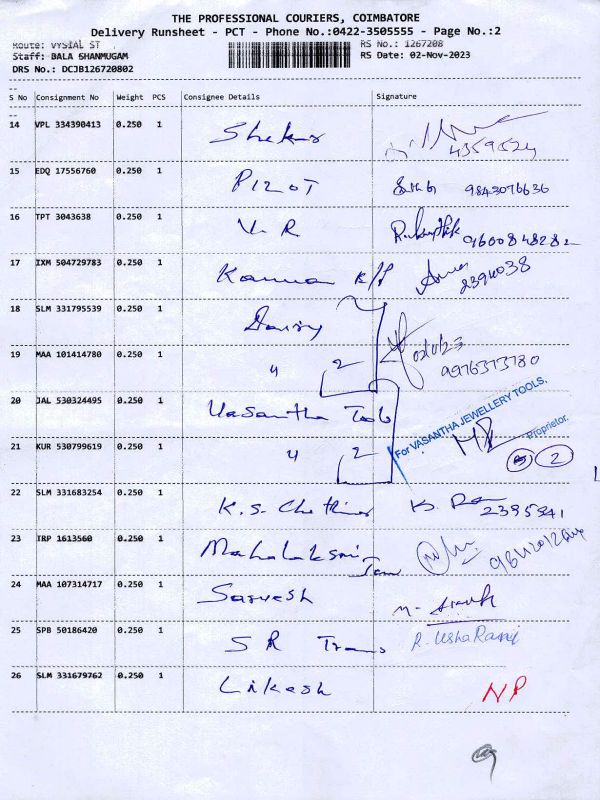 THE PROFESSIONAL COURIERS, COIMBATORE
Delivery Runsheet - PCT - Phone No.:0422-3505555 - Page No.:2
Route: VYSIAL ST RS No.: 1267208
Staff: BALA SHANMUGAM RS Date: 02-Nov-2023
DRS No.: DCJB126720802
S No Consignment No Weight PCS Consignee Details Signature
14 VPL 334390413 0.250 1 Shekar 4359524
15 EDQ 17556760 0.250 1 PIZOT 9843076636
16 TPT 3043638 0.250 1 V. R
17 IXM 504729783 0.250 1 Kannan
18 SLM 331795539 0.250 1
19 MAA 101414780 0.250 1 " 2 9976373780
20 JAL 530324495 0.250 1 Vasantha Tools
For VASANTHA JEWELLERY TOOLS,
Proprietor.
21 KUR 530799619 0.250 1 " 2 2
22 SLM 331683254 0.250 1 K.S. Chettiar 2395941
23 TRP 1613560 0.250 1 Mahalaksmi
24 MAA 107314717 0.250 1 Sarvesh
25 SPB 50186420 0.250 1 S R Trans R. Usha Rani
26 SLM 331679762 0.250 1 Likesh NP